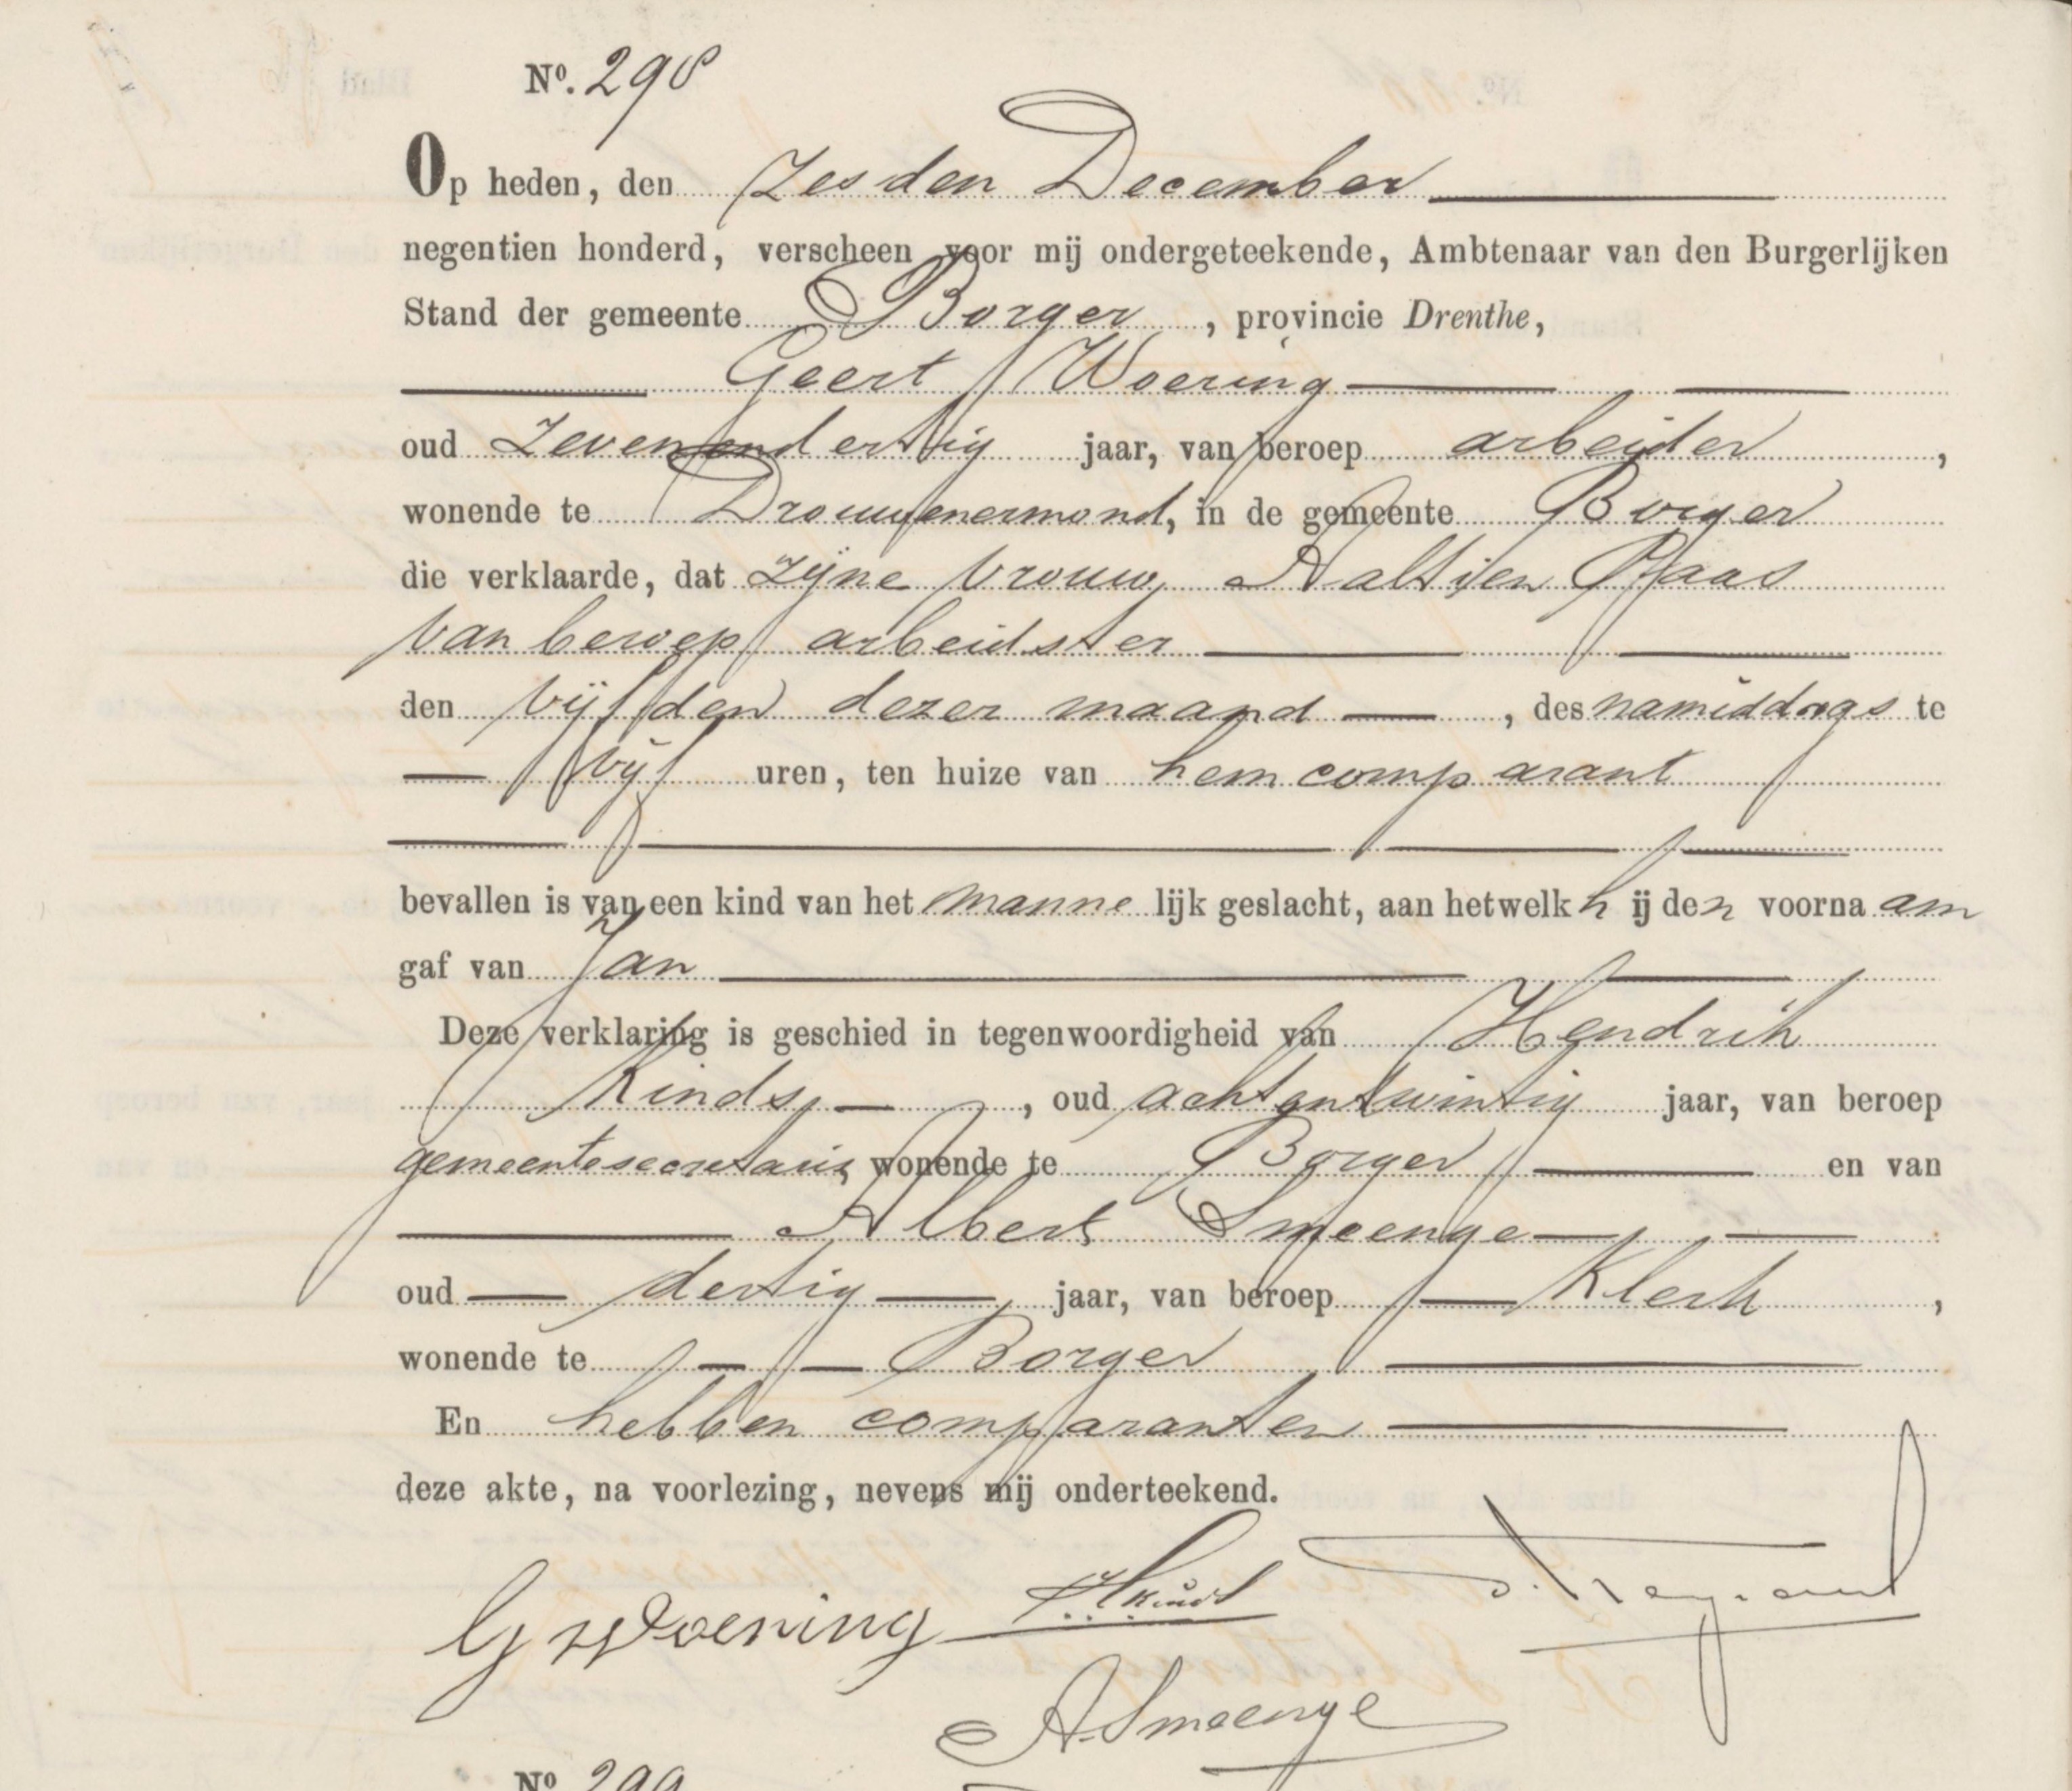 No. 298
Op heden, den Zesden December
negentien honderd, verscheen voor mij ondergeteekende, Ambtenaar van den Burgerlijken
Stand der gemeente Borger, provincie Drenthe,
Geert Woering
oud zevenendertig jaar, van beroep arbeider,
wonende te Drouwenermond, in de gemeente Borger
die verklaarde, dat zijne vrouw, Aaltien Plaas
van beroep arbeidster
den vijfden dezer maand, des namiddags te
vijf uren, ten huize van hem comparant
bevallen is van een kind van het mannelijk geslacht, aan hetwelk hij den voornaam
gaf van Jan
Deze verklaring is geschied in tegenwoordigheid van Hendrik
Kinds, oud achtentwintig jaar, van beroep
gemeentesecretaris, wonende te Borger en van
Albert Smeenge
oud dertig jaar, van beroep Klerk,
wonende te Borger
En hebben comparanten
deze akte, na voorlezing, nevens mij onderteekend.
G Woering HKinds
A. Smeenge
No. 299